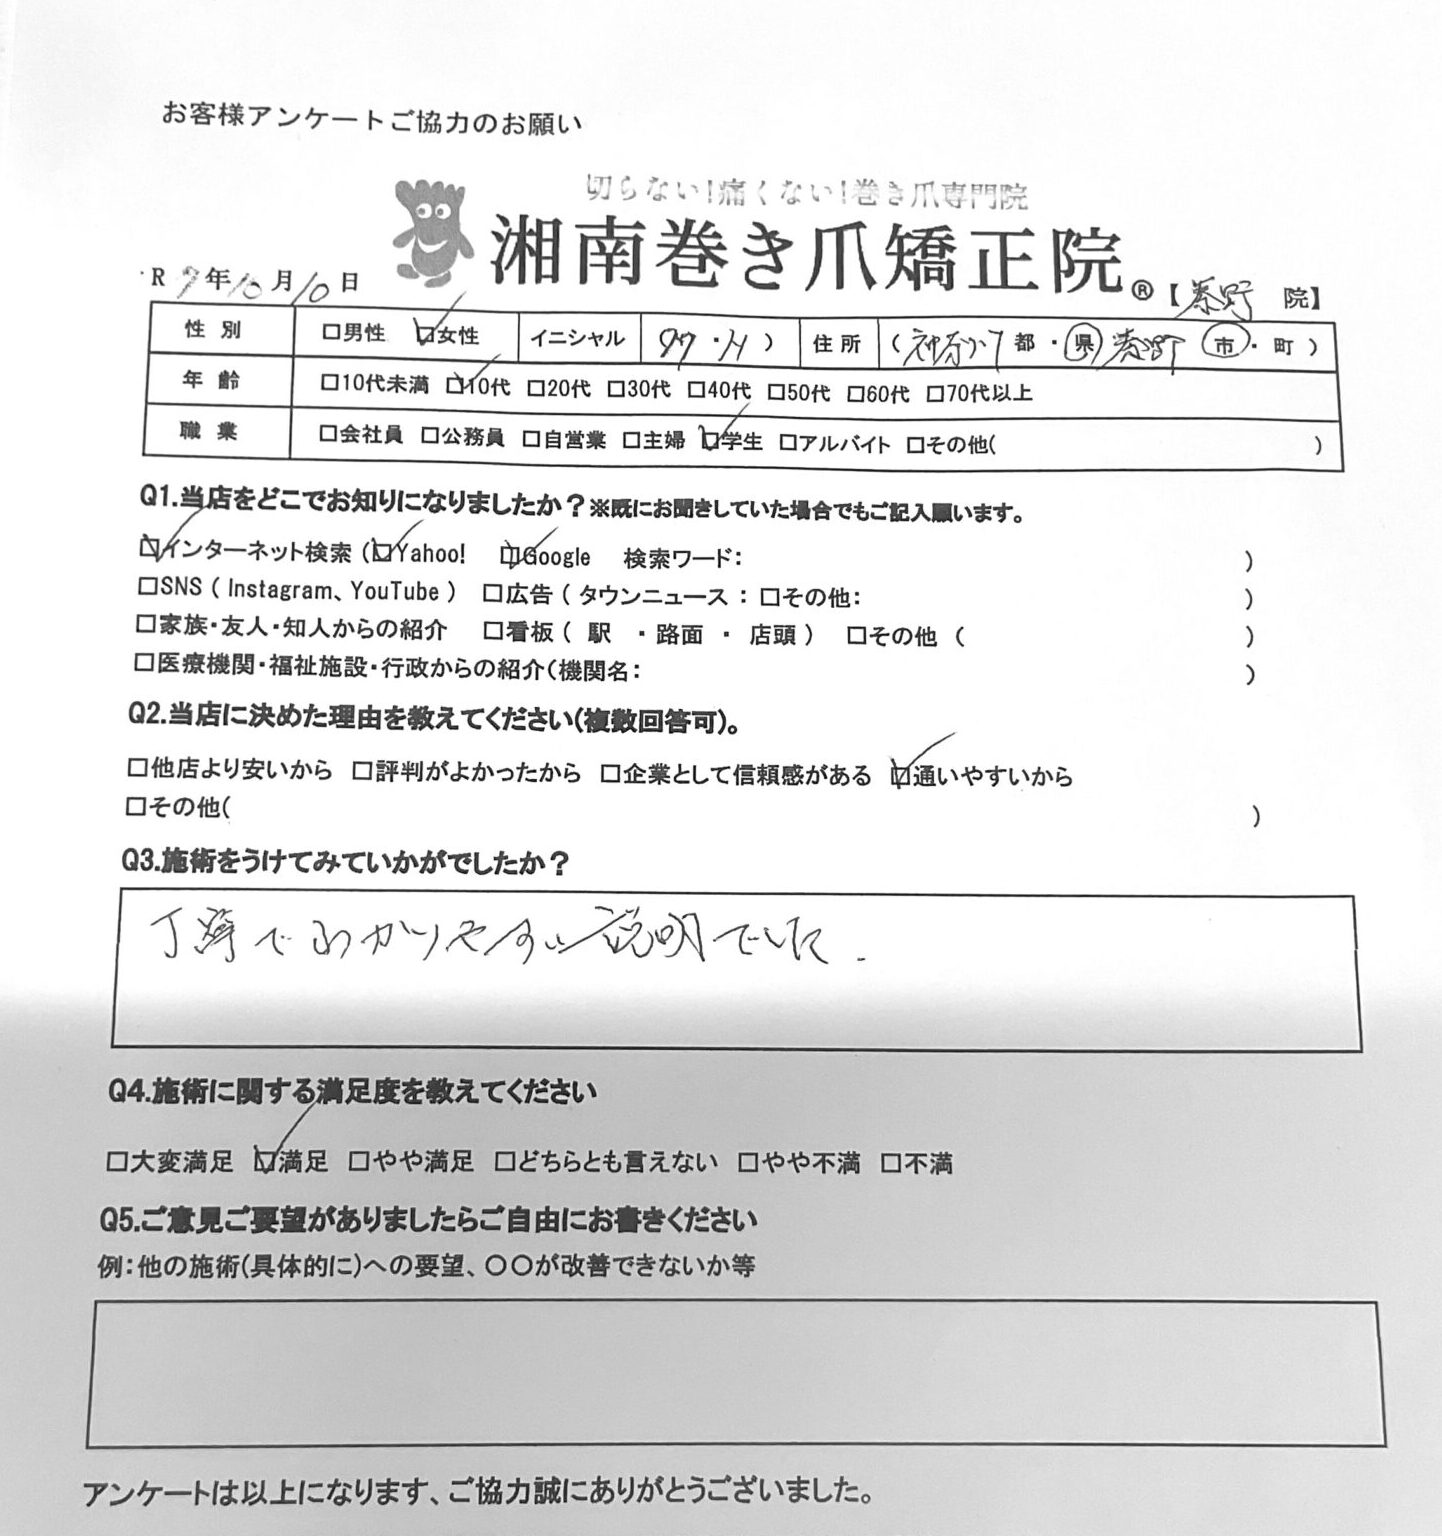 お客様アンケートご協力のお願い
切らない!痛くない!巻き爪専門院
湘南巻き爪矯正院®【秦野 院】
R 7年10月10日
性別 □男性 ☑女性 イニシャル ・H ) 住所 (神奈川 都・県 秦野 市・町 )
年齢 □10代未満 ☑10代 □20代 □30代 □40代 □50代 □60代 □70代以上
職業 □会社員 □公務員 □自営業 □主婦 ☑学生 □アルバイト □その他( )
Q1.当店をどこでお知りになりましたか？※既にお聞きしていた場合でもご記入願います。
☑インターネット検索 (☑Yahoo! ☑Google 検索ワード: )
□SNS ( Instagram、YouTube ) □広告 ( タウンニュース : □その他: )
□家族・友人・知人からの紹介 □看板 ( 駅 ・ 路面 ・ 店頭 ) □その他 ( )
□医療機関・福祉施設・行政からの紹介(機関名: )
Q2.当店に決めた理由を教えてください(複数回答可)。
□他店より安いから □評判がよかったから □企業として信頼感がある ☑通いやすいから
□その他( )
Q3.施術をうけてみていかがでしたか？
丁寧でわかりやすい説明でした.
Q4.施術に関する満足度を教えてください
□大変満足 ☑満足 □やや満足 □どちらとも言えない □やや不満 □不満
Q5.ご意見ご要望がありましたらご自由にお書きください
例:他の施術(具体的に)への要望、〇〇が改善できないか等
アンケートは以上になります、ご協力誠にありがとうございました。